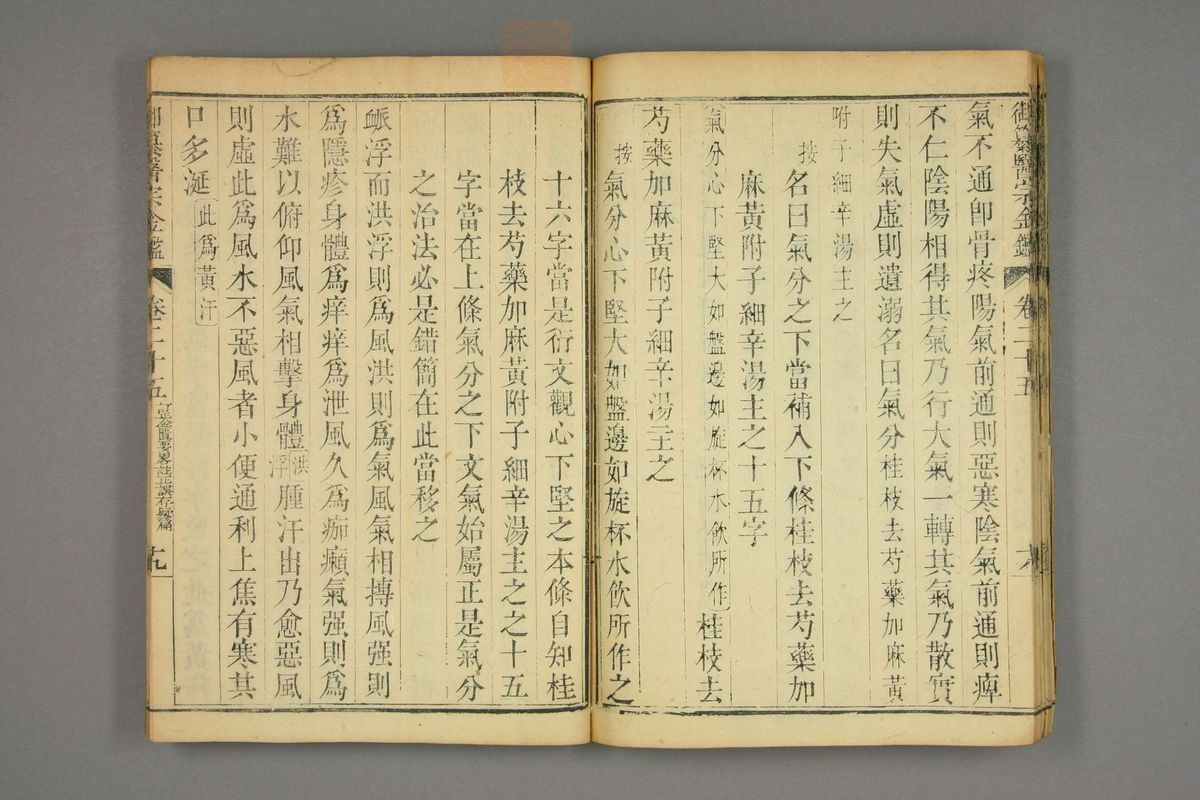 御纂醫宗金鑑 卷二十五
氣不通卽骨疼陽氣前通則惡寒陰氣前通則痺
不仁陰陽相得其氣乃行大氣一轉其氣乃散實
則失氣虛則遺溺名曰氣分桂枝去芍藥加麻黃
附子細辛湯主之
按名曰氣分之下當補入下條桂枝去芍藥加
麻黃附子細辛湯主之十五字
氣分心下堅大如盤邊如旋杯水飲所作桂枝去
芍藥加麻黃附子細辛湯主之
按氣分心下堅大如盤邊如旋杯水飲所作之
十六字當是衍文觀心下堅之本條自知桂
枝去芍藥加麻黃附子細辛湯主之之十五
字當在上條氣分之下文氣始屬正是氣分
之治法必是錯簡在此當移之
脈浮而洪浮則爲風洪則爲氣風氣相搏風强則
爲隱疹身體爲痒痒爲泄風久爲痂癩氣强則爲
水難以俯仰風氣相擊身體洪浮腫汗出乃愈惡風
則虛此爲風水不惡風者小便通利上焦有寒其
口多涎此爲黃汗
御纂醫宗金鑑 卷二十五 訂正金匱要畧註正誤存疑篇 十九